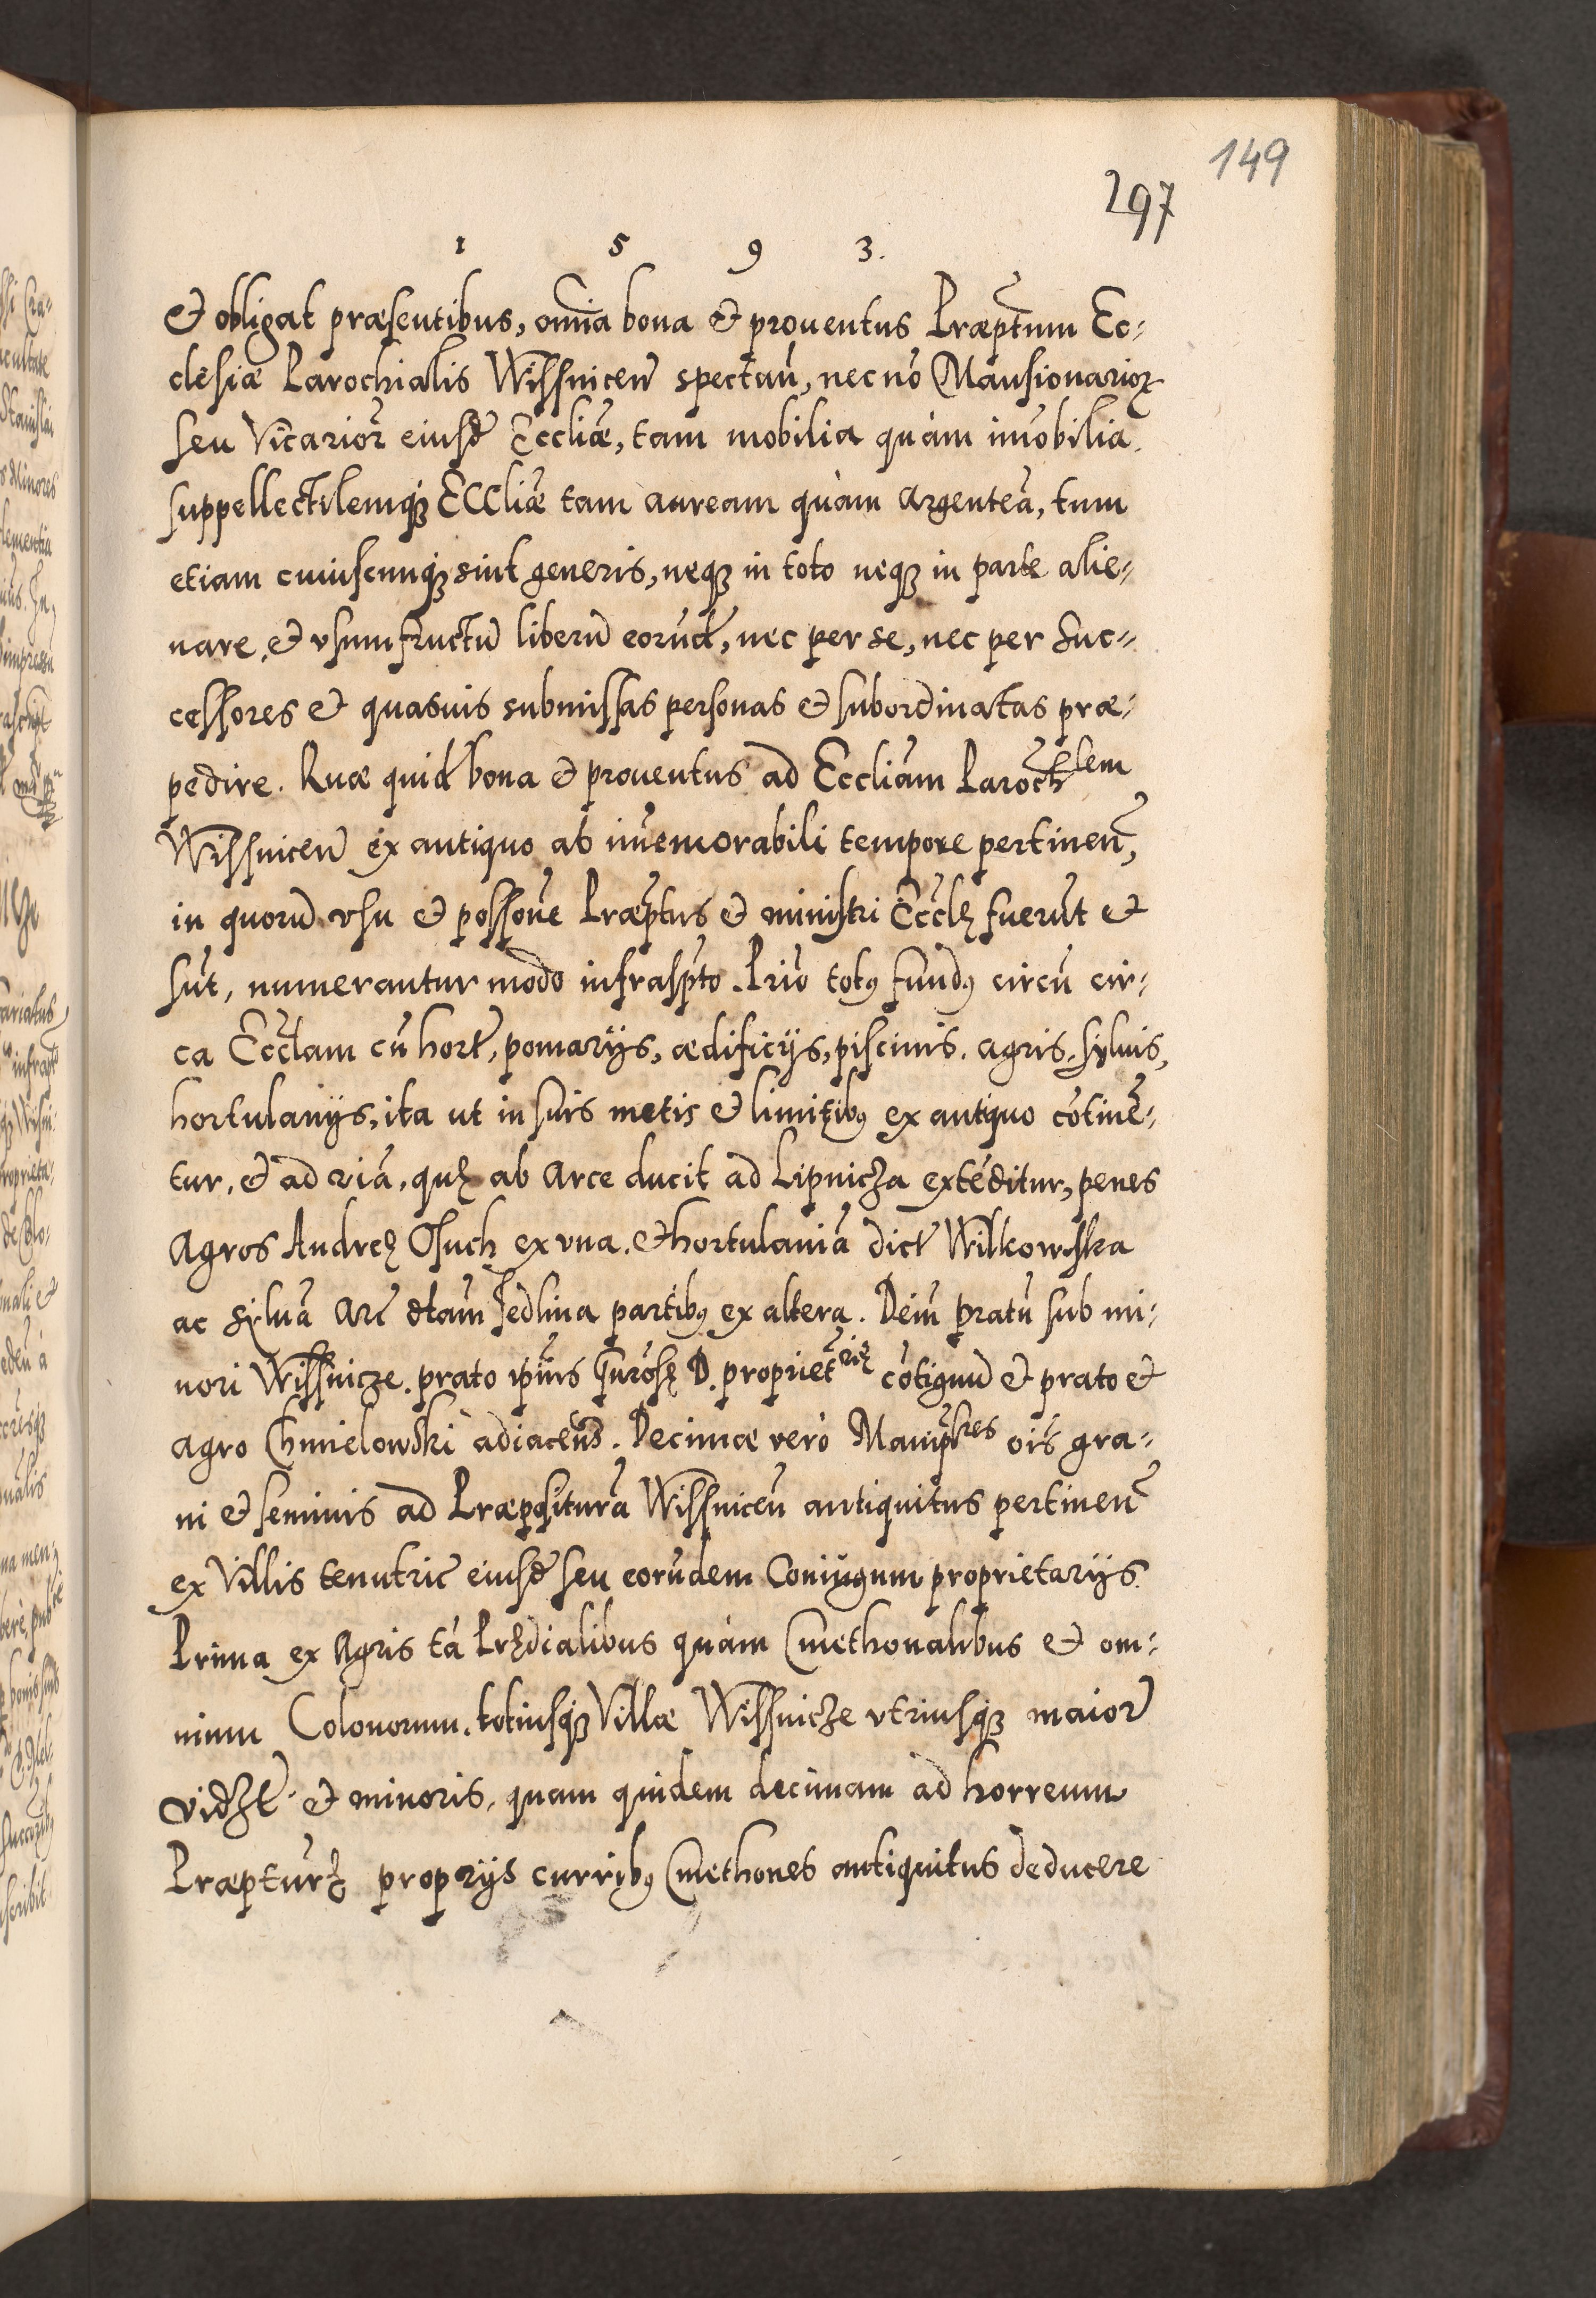 149
297
1 5 9 3.
et obligat præsentibus, om̃ia bona et prouentus Præptum Ec-
clesiæ Parochialis Wissnicen̄ spectan̄, necnō Mansionarioꝝ
seu Vicarior̃ eiusd̃ Eccliæ, tam mobilia quàm im̄obilia.
suppellectilemqꝫ ECCliæ tam auream quàm argenteā, tum
etiam cuiuscunqꝫ sint generis, neqꝫ in toto neqꝫ in parte alie-
nare, et vsumfructū liberū eorund̃, nec per se, nec per suc-
cessores et quasuis submissas personas et subordinatas præ-
pedire. Quæ quid̃ bona et prouentus ad Eccliam Parochlem
Wissnicen̄ ex antiquo ab im̄emorabili tempore pertinen̄,
in quorū vsu et possōne Præptus et ministri Eccłę fuerūt et
sūt, numerantur modo infrasp̃to. Prīo totꝰ fundꝰ circū cir-
ca Eccłam cū hort̃, pomarijs, ædificijs, piscinis. agris, syluis,
hortulanijs, ita ut in suis metis et limitibꝰ ex antiquo cōtinē-
tur, et ad viā, quę ab Arce ducit ad Lipnicza extēditur, penes
Agros Andreę Osuch ex vna. et hortulaniā dict̃ Wilkowska
ac syluā Arc̃ dtam Jedlina partibꝰ ex altera. Dein̄ pratū sub mi-
nori Wissnicze. prato ip̄iūs Gūrosę D. proprietr̃ię cōtiguū et prato et
agro Chmielowski adiacen̄d. Decimæ verò Manip̃lres oīs gra-
ni et seminis ad Præpositurā Wissnicen̄ antiquitus pertinen̄
ex Villis tenutric̃ eiusd̃ seu eorūdem Coniugum proprietarijs.
Prima ex Agris tā Prędialibus quàm Cmethonalibus et om-
nium Colonorum, totiusqꝫ Villæ Wissnicze vtriusqꝫ maior̃
vidꝫt̃ et minoris, quam quidem decimam ad horreum
Præpturę proprijs curribꝰ Cmethones antiquitus deducere